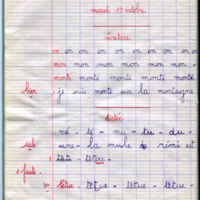 mardi 15 octobre
écriture
on on on on on on on on
mon mon mon mon mon mon
monté monté monté monté monté
bien je suis monté sur la montagne
dictée
né - té - nu - tu - du -
sale ure - la mule de rémi et
têtu têtue
1 faute
têtue - têtue - têtue - têtue -